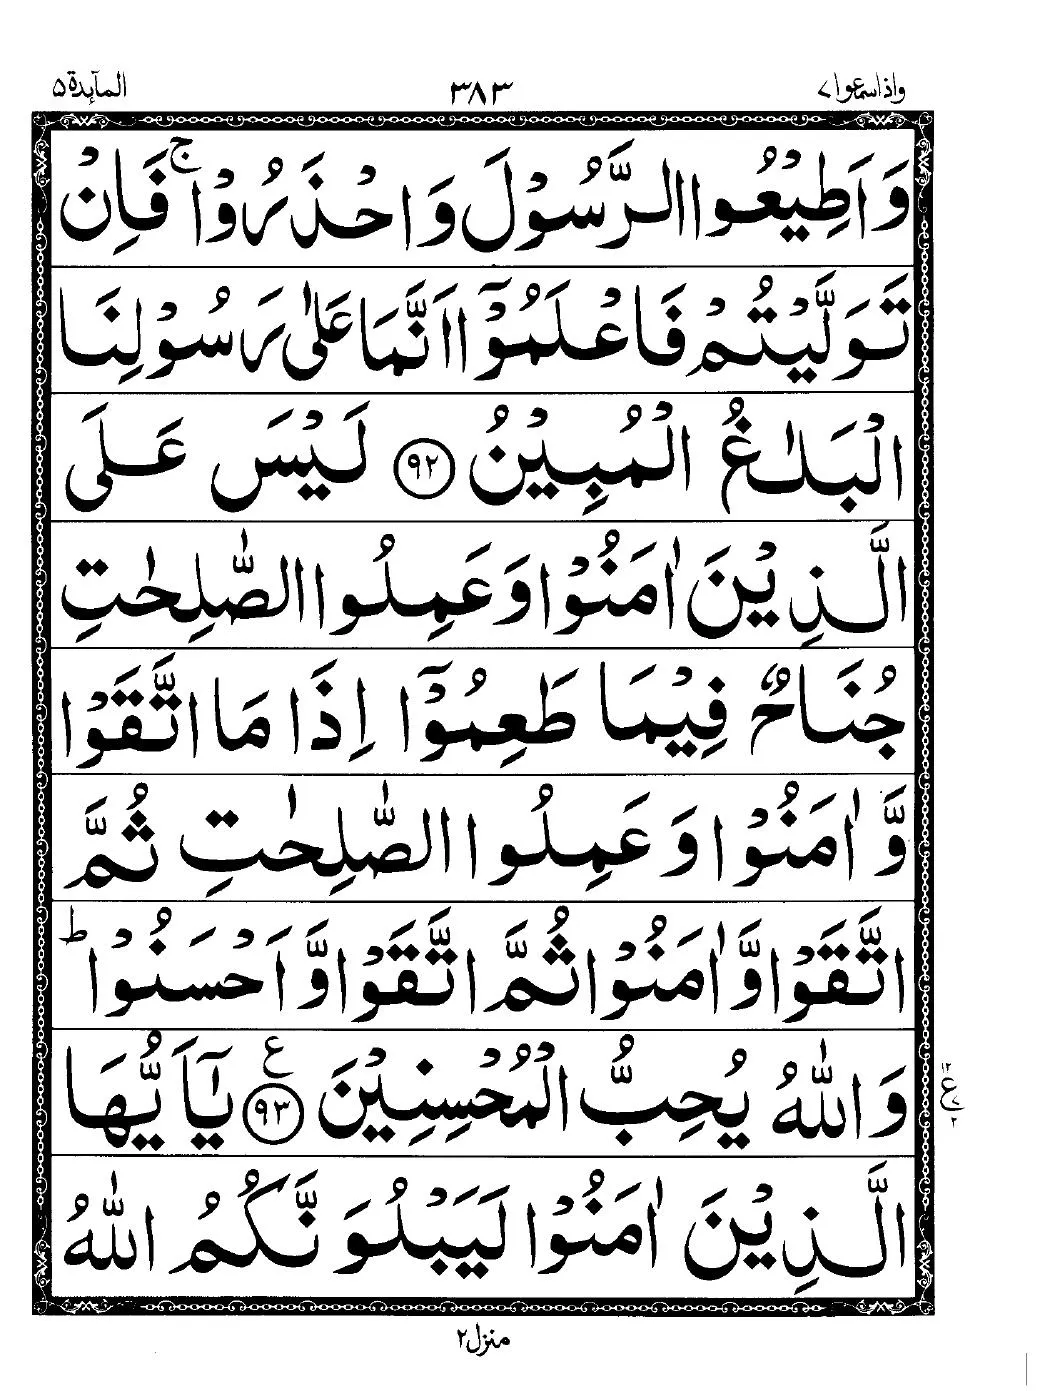 واذاسمعوا ٧
٣٨٣
المآىِٕدة ۵
وَاَطِيْعُوا الرَّسُوْلَ وَاحْذَرُوْا ۚ فَاِنْ
تَوَلَّيْتُمْ فَاعْلَمُوْۤا اَنَّمَا عَلٰى رَسُوْلِنَا
الْبَلٰغُ الْمُبِيْنُ ﴿۹۲﴾ لَيْسَ عَلَى
الَّذِيْنَ اٰمَنُوْا وَعَمِلُوا الصّٰلِحٰتِ
جُنَاحٌ فِيْمَا طَعِمُوْۤا اِذَا مَا اتَّقَوْا
وَّاٰمَنُوْا وَعَمِلُوا الصّٰلِحٰتِ ثُمَّ
اتَّقَوْا وَّاٰمَنُوْا ثُمَّ اتَّقَوْا وَّاَحْسَنُوْا ؕ
وَاللّٰهُ يُحِبُّ الْمُحْسِنِيْنَ ﴿۹۳﴾ ع يٰۤاَيُّهَا
١٢
ع
٧
٢
الَّذِيْنَ اٰمَنُوْا لَيَبْلُوَنَّكُمُ اللّٰهُ
منزل ٢